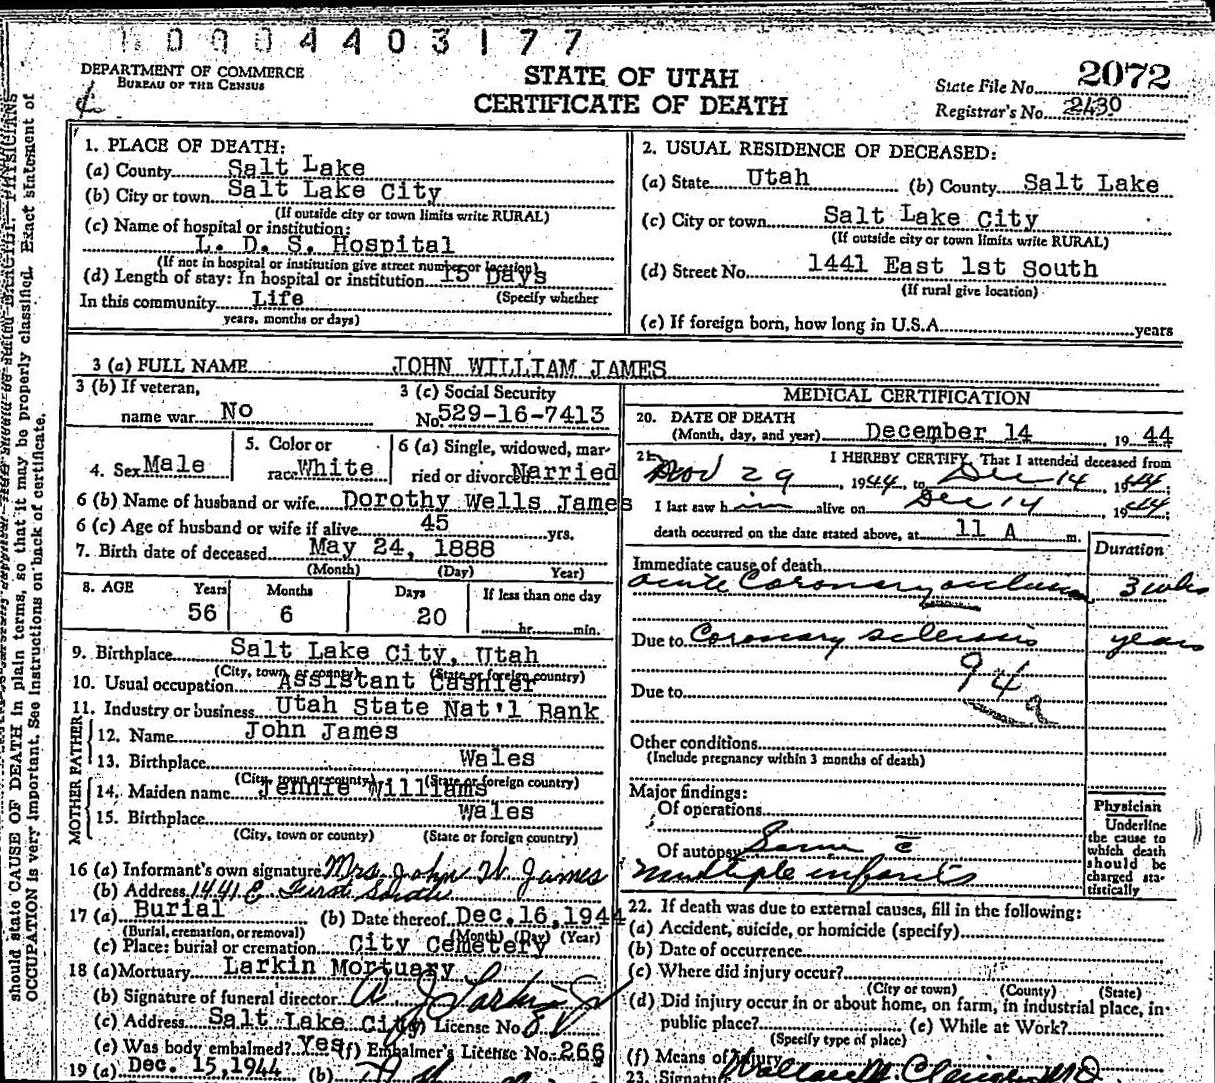 0 0 0 4 4 0 3 1 7 7
DEPARTMENT OF COMMERCE
BUREAU OF THE CENSUS
STATE OF UTAH
CERTIFICATE OF DEATH
State File No. 2072
Registrar's No. 2430
should state CAUSE OF DEATH in plain terms, so that it may be properly classified. Exact statement of
OCCUPATION is very important. See Instructions on back of certificate.
1. PLACE OF DEATH:
(a) County Salt Lake
(b) City or town Salt Lake City
(If outside city or town limits write RURAL)
(c) Name of hospital or institution:
L. D. S. Hospital
(If not in hospital or institution give street number or location)
(d) Length of stay: In hospital or institution 15 Days
In this community Life (Specify whether
years, months or days)
2. USUAL RESIDENCE OF DECEASED:
(a) State Utah (b) County Salt Lake
(c) City or town Salt Lake City
(If outside city or town limits write RURAL)
(d) Street No. 1441 East 1st South
(If rural give location)
(e) If foreign born, how long in U.S.A. years
3 (a) FULL NAME JOHN WILLIAM JAMES
3 (b) If veteran,
name war No
3 (c) Social Security
No. 529-16-7413
4. Sex Male
5. Color or
race White
6 (a) Single, widowed, mar-
ried or divorced Married
6 (b) Name of husband or wife Dorothy Wells James
6 (c) Age of husband or wife if alive 45 yrs.
7. Birth date of deceased May 24, 1888
(Month) (Day) Year)
8. AGE Years Months Days If less than one day
56 6 20 hr. min.
9. Birthplace Salt Lake City, Utah
(City, town or county) (State or foreign country)
10. Usual occupation Assistant Cashier
11. Industry or business Utah State Nat'l Bank
FATHER
12. Name John James
13. Birthplace Wales
(City, town or county) (State or foreign country)
MOTHER
14. Maiden name Jennie Williams
15. Birthplace Wales
(City, town or county) (State or foreign country)
16 (a) Informant's own signature Mrs. John W. James
(b) Address 1441 E First South
17 (a) Burial (b) Date thereof Dec. 16, 1944
(Burial, cremation, or removal) (Month) (Day) (Year)
(c) Place: burial or cremation City Cemetery
18 (a) Mortuary Larkin Mortuary
(b) Signature of funeral director A J Larkin
(c) Address Salt Lake City License No.
(e) Was body embalmed? Yes (f) Embalmer's License No. 266
19 (a) Dec. 15, 1944 (b)
MEDICAL CERTIFICATION
20. DATE OF DEATH
(Month, day, and year) December 14 , 1944
21. I HEREBY CERTIFY, That I attended deceased from
Nov 29 , 1944, to Dec 14 1944;
I last saw him alive on Dec 14 1944;
death occurred on the date stated above, at 11 A m.
Duration
Immediate cause of death
acute Coronary occlusion 3 wks
Due to Coronary sclerosis years
94a
Due to
Other conditions
(Include pregnancy within 3 months of death)
Major findings:
Of operations
Of autopsy Same c̄
Multiple infarcts
Physician
Underline
the cause to
which death
should be
charged sta-
tistically
22. If death was due to external causes, fill in the following:
(a) Accident, suicide, or homicide (specify)
(b) Date of occurrence
(c) Where did injury occur?
(City or town) (County) (State)
(d) Did injury occur in or about home, on farm, in industrial place, in
public place? (e) While at Work?
(Specify type of place)
(f) Means of Injury
23. Signature